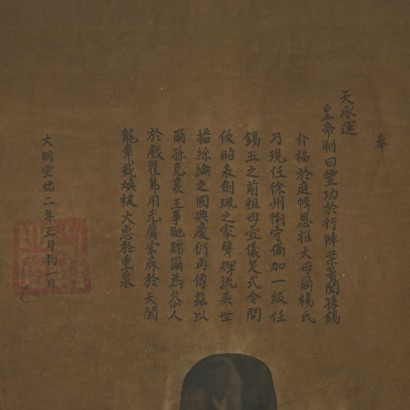 奉
天承運
皇帝制曰豐功於行陣業著聞孫錫
介福於庭幃恩推大母爾楊氏
乃現任徐州衛守備加一級任
錫五之前祖母壼儀是式令聞
攸昭表劍珮之家聲輝流奕世
播絲綸之國典慶衍再傳茲以
爾孫克襄王事馳贈爾為恭人
於戲翟茀用光膺宏庥於天闕
龍章載煥被大忠於重泉
大明宣德二年正月初一日